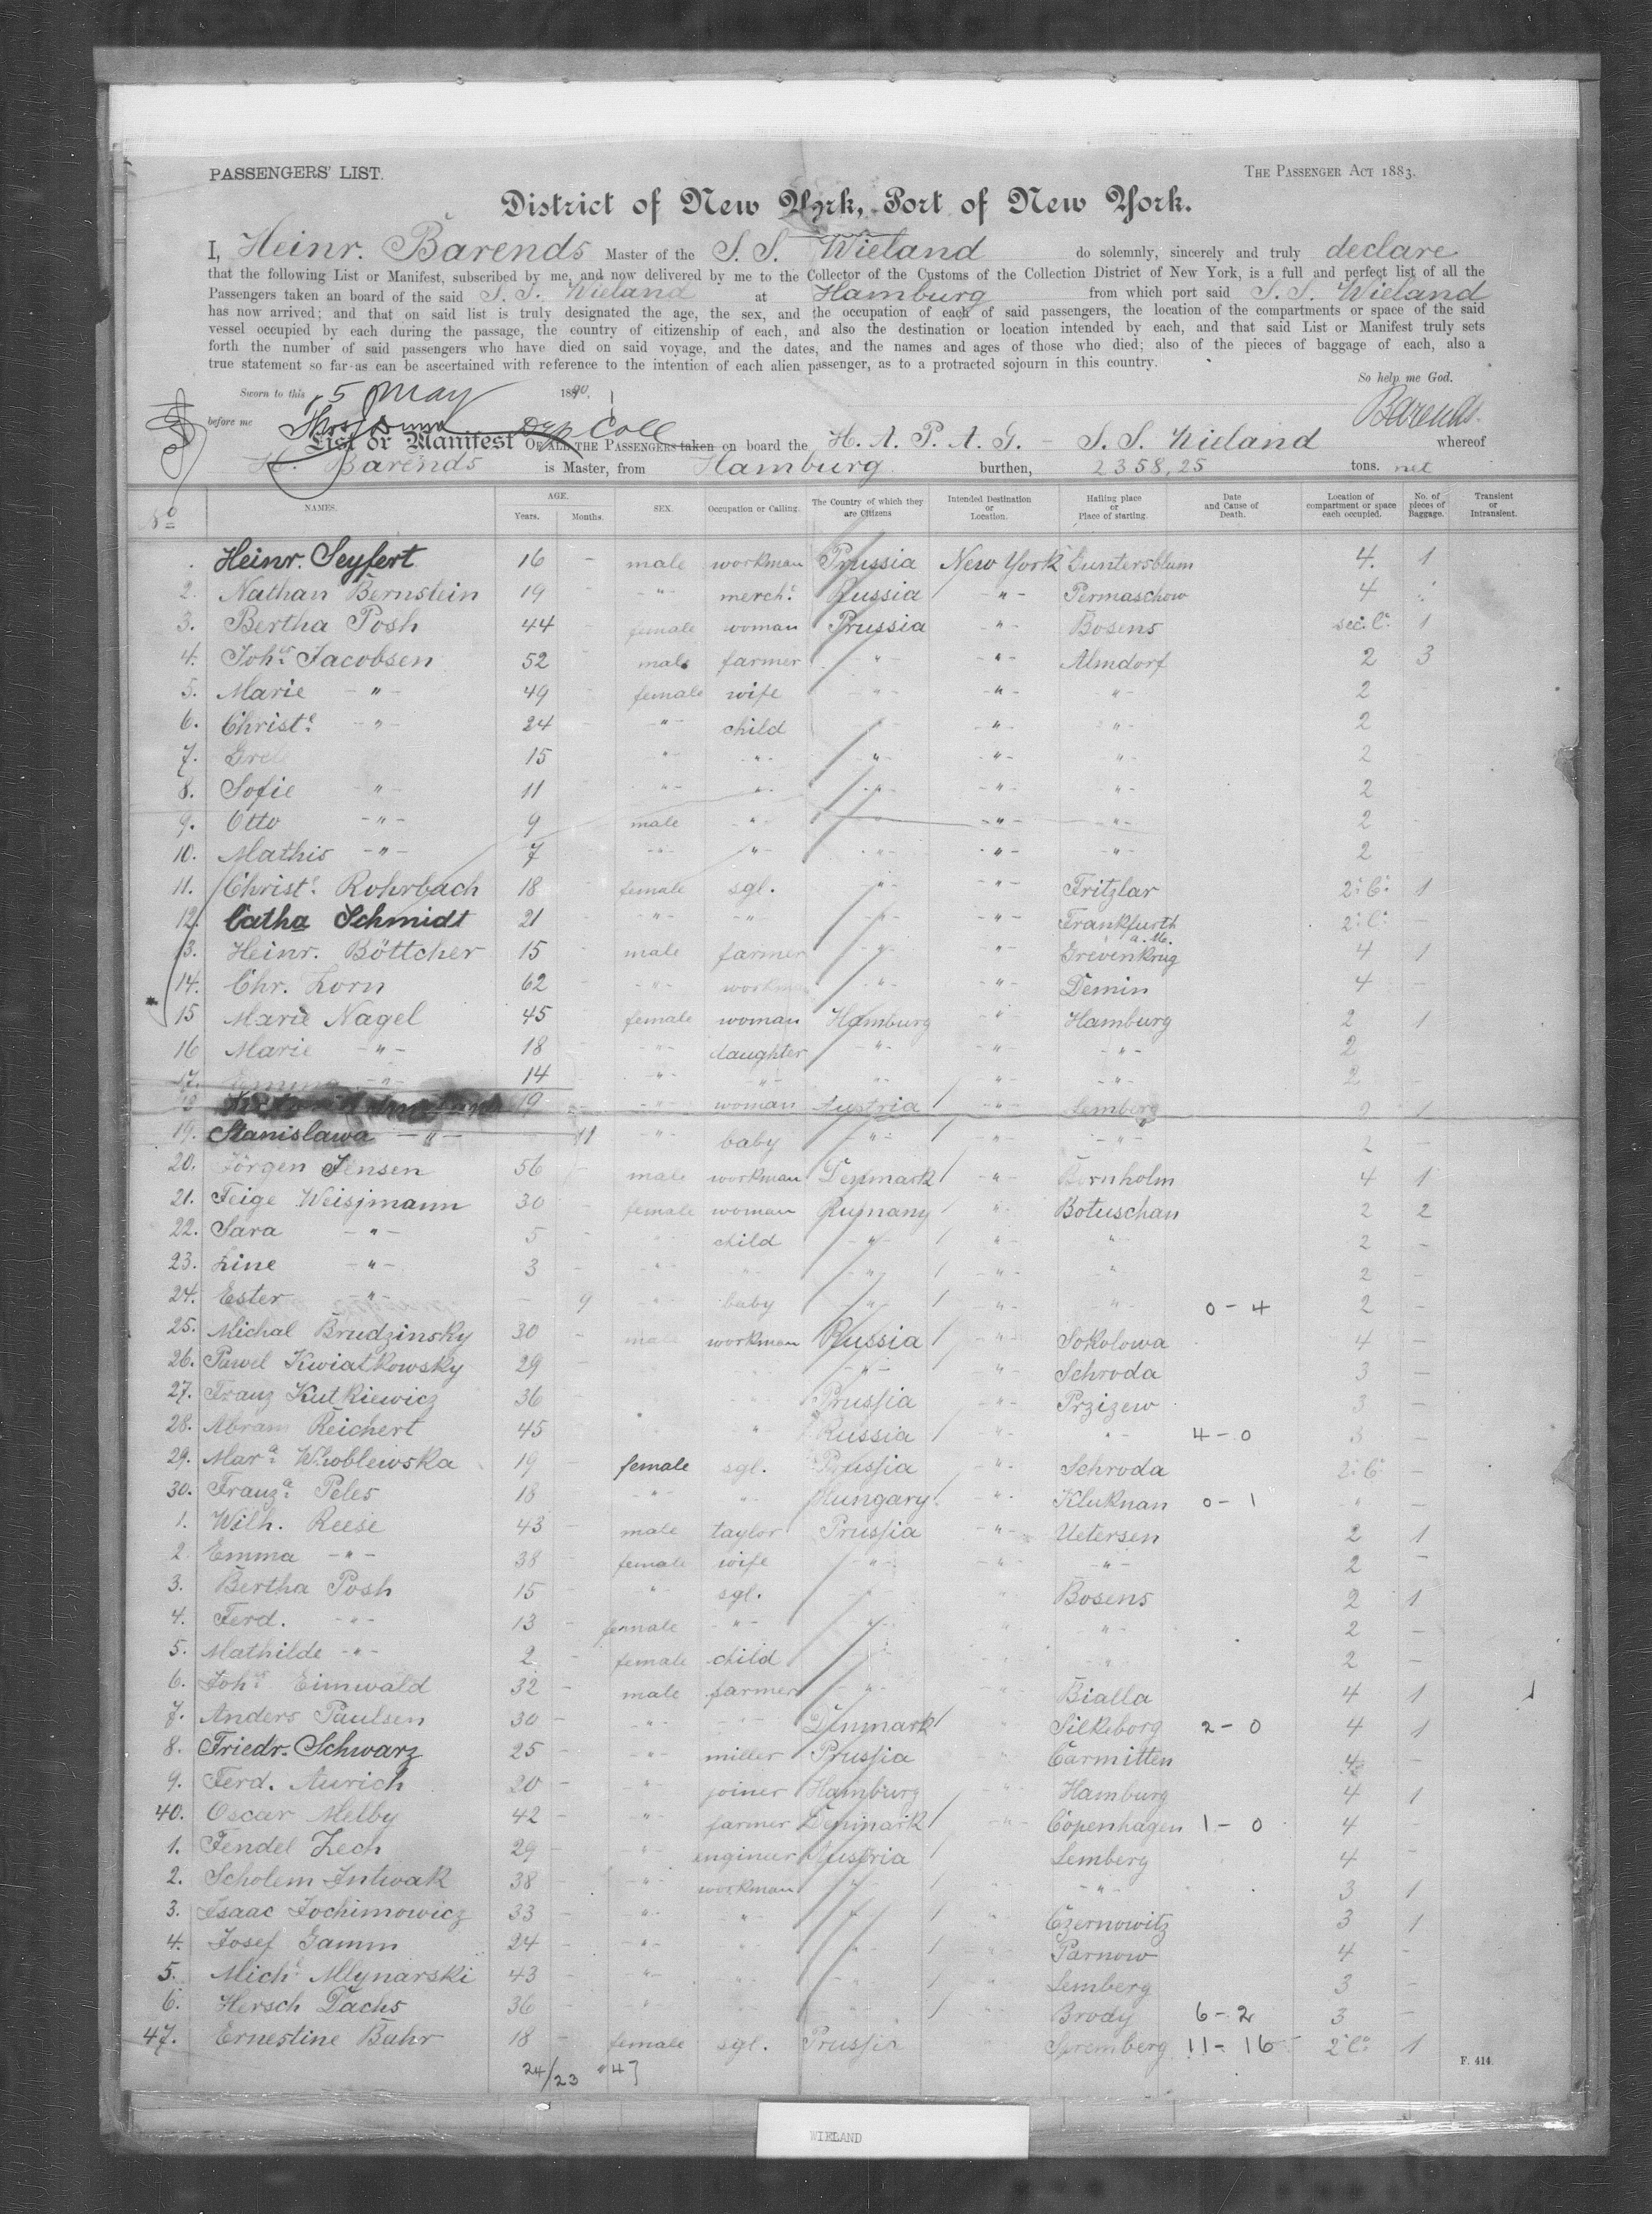 PASSENGERS' LIST. THE PASSENGER ACT 1883.
District of New York, Port of New York.
I, Heinr. Barends Master of the S. S. Wieland do solemnly, sincerely and truly declare
that the following List or Manifest, subscribed by me, and now delivered by me to the Collector of the Customs of the Collection District of New York, is a full and perfect list of all the
Passengers taken an board of the said S. S. Wieland at Hamburg from which port said S. S. Wieland
has now arrived; and that on said list is truly designated the age, the sex, and the occupation of each of said passengers, the location of the compartments or space of the said
vessel occupied by each during the passage, the country of citizenship of each, and also the destination or location intended by each, and that said List or Manifest truly sets
forth the number of said passengers who have died on said voyage, and the dates, and the names and ages of those who died; also of the pieces of baggage of each, also a
true statement so far as can be ascertained with reference to the intention of each alien passenger, as to a protracted sojourn in this country.
So help me God.
Sworn to this 5 May 1890.
before me Dep Coll Barends.
List or Manifest OF ALL THE PASSENGERS taken on board the H. A. P. A. G. - S. S. Wieland whereof
H. Barends is Master, from Hamburg burthen, 2358,25 tons. net
No NAMES. AGE. Years. Months. SEX. Occupation or Calling. The Country of which they are Citizens Intended Destination or Location. Hailing place or Place of starting. Date and Cause of Death. Location of compartment or space each occupied. No. of pieces of Baggage. Transient or Intransient.
Heinr. Seyfert 16 - male workman Prussia New York Guntersblum 4. 1
2. Nathan Bernstein 19 - -"- merch.t Russia -"- Permaschow 4
3. Bertha Posh 44 female woman Prussia -"- Bosens sec. C. 1
4. Joh.s Jacobsen 52 male farmer -"- -"- Almdorf 2 3
5. Marie -"- 49 female wife -"- -"- -"- 2
6. Christ.e -"- 24 -"- child -"- -"- -"- 2
7. Gret 15 -"- -"- -"- -"- -"- 2
8. Sofie -"- 11 -"- -"- -"- -"- -"- 2
9. Otto -"- 9 male -"- -"- -"- -"- 2
10. Mathis -"- 7 -"- -"- -"- -"- -"- 2
11. Christ.e Rohrbach 18 female sgl. -"- -"- Fritzlar 2. C. 1
12. Catha Schmidt 21 -"- -"- -"- -"- Frankfurth a. M. 2. C.
13. Heinr. Böttcher 15 male farmer -"- -"- Grevenkrug 4 1
14. Chr. Zorn 62 -"- workman -"- -"- Demin 4 -
15 Marie Nagel 45 female woman Hamburg -"- Hamburg 2 1
16 Marie -"- 18 -"- daughter -"- -"- -"- 2
17. Emma -"- 14 -"- -"- -"- -"- -"- 2
18 19 -"- woman Austria -"- Lemberg 2 1
19. Stanislawa -"- 11 -"- baby -"- -"- -"- 2 -
20. Jörgen Jensen 56 male workman Denmark -"- Bornholm 4 1
21. Feige Weisjmann 30 female woman Rumany " Botuschan 2 2
22. Sara -"- 5 " child -"- -"- " 2 -
23. Line -"- 3 -"- -"- -"- " 2 -
24. Ester " - 9 -"- baby -"- -"- -"- 0-4 2 -
25. Michal Brudzinsky 30 male workman Russia -"- Sokolowa 4 -
26. Pawel Kwiatkowsky 29 -"- " Schroda 3 -
27. Franz Kutkiewicz 36 Prussia -"- Przizew 3 -
28. Abram Reichert 45 " Russia -"- "- 4-0 3 -
29. Mar.a Wroblewska 19 - female sgl. Prussia -"- Schroda 2. C. -
30. Franz.a Peles 18 -"- " Hungary. -"- Kluknan 0-1 " -
1. Wilh. Reese 43 - male taylor Prussia -"- Uetersen 2 1
2. Emma -"- 38 - female wife -"- -"- -"- 2 -
3. Bertha Posh 15 - -"- sgl. -"- " Bosens 2 1
4. Ferd. -"- 13 - female -"- " " "- 2 -
5. Mathilde -"- 2 - female child " 2 -
6. Joh.s Eimwald 32 - male farmer -"- -"- Bialla 4 1
7. Anders Paulsen 30 - -"- -"- Denmark " Silkeborg 2-0 4 1
8. Friedr. Schwarz 25 - -"- miller Prussia " Carmitten 4 -
9. Ferd. Aurich 20 - -"- joiner Hamburg -"- Hamburg 4 1
40. Oscar Melby 42 - -"- farmer Denmark -"- Copenhagen 1-0 4 -
1. Fendel Zech 29 - -"- engineer Austria Lemberg 4 -
2. Scholem Intwak 38 - -"- workman " -"- 3 1
3. Isaac Jochimowicz 33 - -"- -"- " " Czernowitz 3 1
4. Josef Gamm 24 - -"- " " Parnow 4 -
5. Mich.l Mlynarski 43 - -"- " Lemberg 3 -
6. Hersch Dachs 36 - " Brody 6-2 3 -
47. Ernestine Buhr 18 - female sgl. Prussia Spremberg 11-16 2 C. 1
24/23 "47 F. 414.
WIELAND